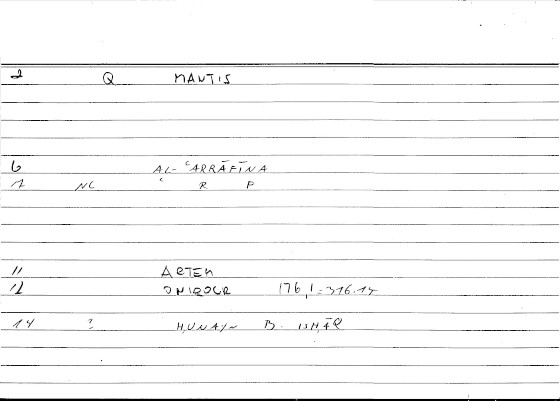 2 Q MANTIS
6 AL- ʿARRĀFĪNA
7 NC ʿ R P
11 ARTEM
12 ONIROCR 176,1=316.14
14 ? ḤUNAYN B. ISḤĀQ